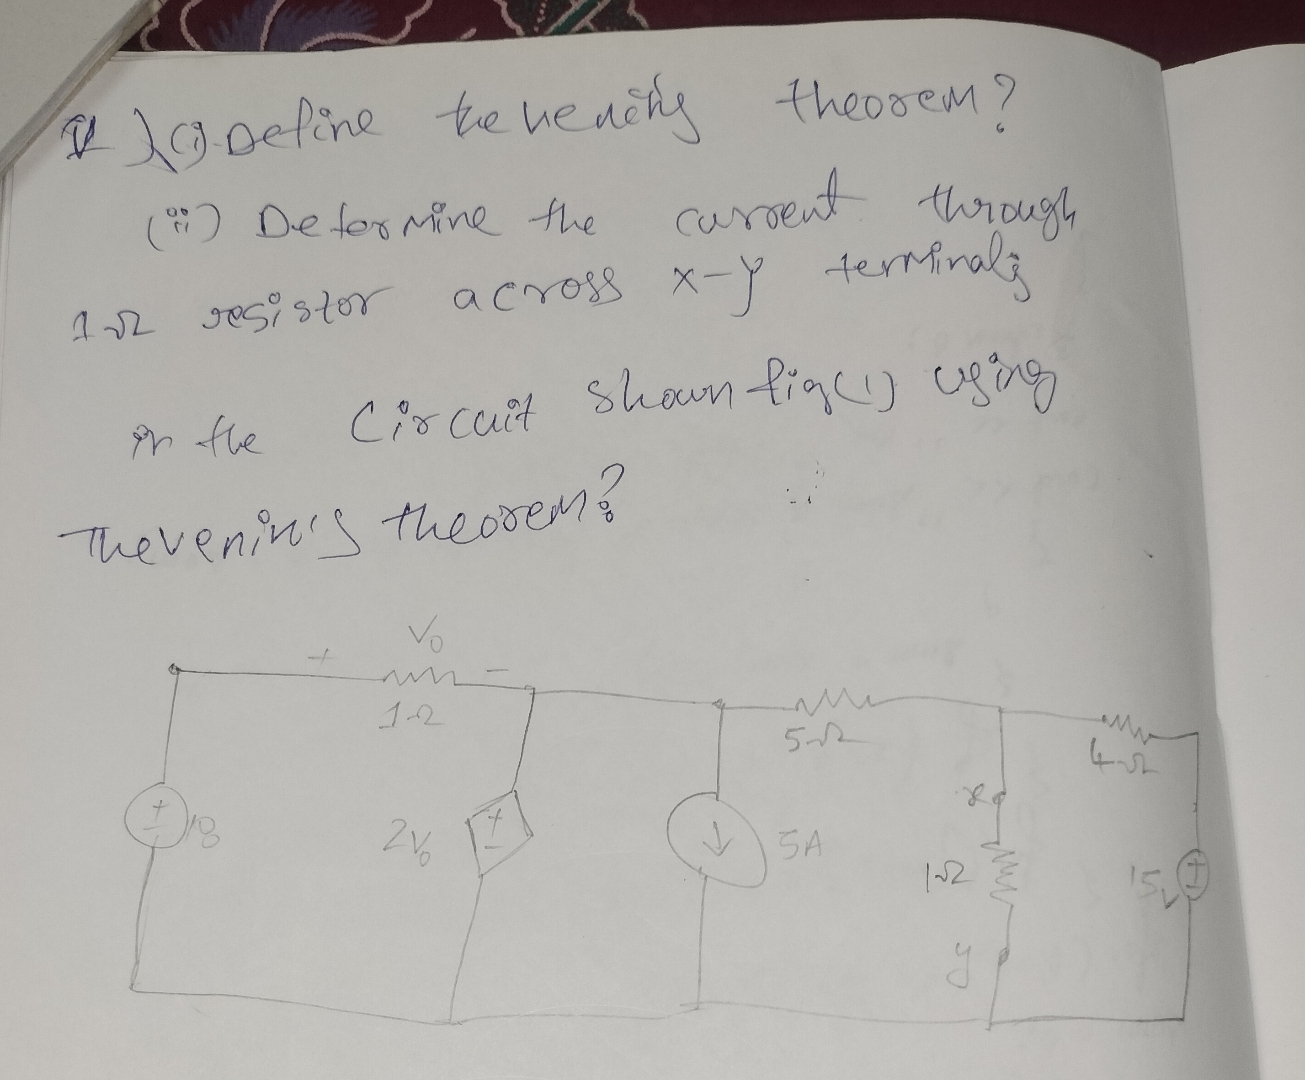 (i) Define thevenin's theorem?
(ii) Determine the current through
1Ω resistor across x-y terminals
in the Circuit shown fig(1) using
Thevenin's theorem?
V₀
+ -
1Ω
5Ω
4Ω
+
-
18
2V₀
+
-
5A
x
1Ω
y
15V
+
-